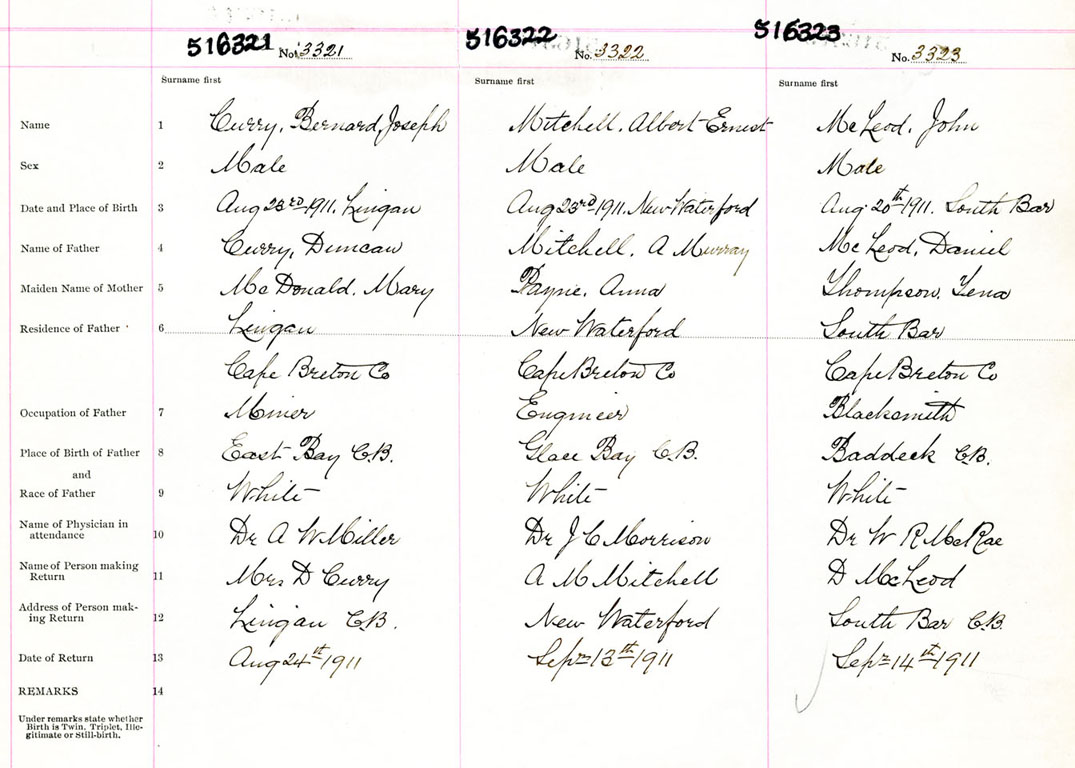 516321 No. 3321 516322 No. 3322 516323 No. 3323
Surname first Surname first Surname first
Name 1 Curry, Bernard Joseph Mitchell, Albert Ernest McLeod, John
Sex 2 Male Male Male
Date and Place of Birth 3 Aug 23rd 1911. Lingan Aug 23rd 1911. New Waterford Aug. 20th 1911. South Bar
Name of Father 4 Curry, Duncan Mitchell, A Murray McLeod, Daniel
Maiden Name of Mother 5 McDonald, Mary Payne, Anna Thompson, Lena
Residence of Father 6 Lingan New Waterford South Bar
Cape Breton Co Cape Breton Co Cape Breton Co
Occupation of Father 7 Miner Engineer Blacksmith
Place of Birth of Father 8 East Bay C.B. Glace Bay C.B. Baddeck C.B.
and
Race of Father 9 White White White
Name of Physician in
attendance 10 Dr A W Miller Dr J C Morrison Dr W R McRae
Name of Person making
Return 11 Mrs D Curry A M Mitchell D McLeod
Address of Person mak-
ing Return 12 Lingan C.B. New Waterford South Bar C.B.
Date of Return 13 Aug 24th 1911 Sepr 13th 1911 Sepr 14th 1911
REMARKS 14
Under remarks state whether
Birth is Twin, Triplet, Ille-
gitimate or Still-birth.